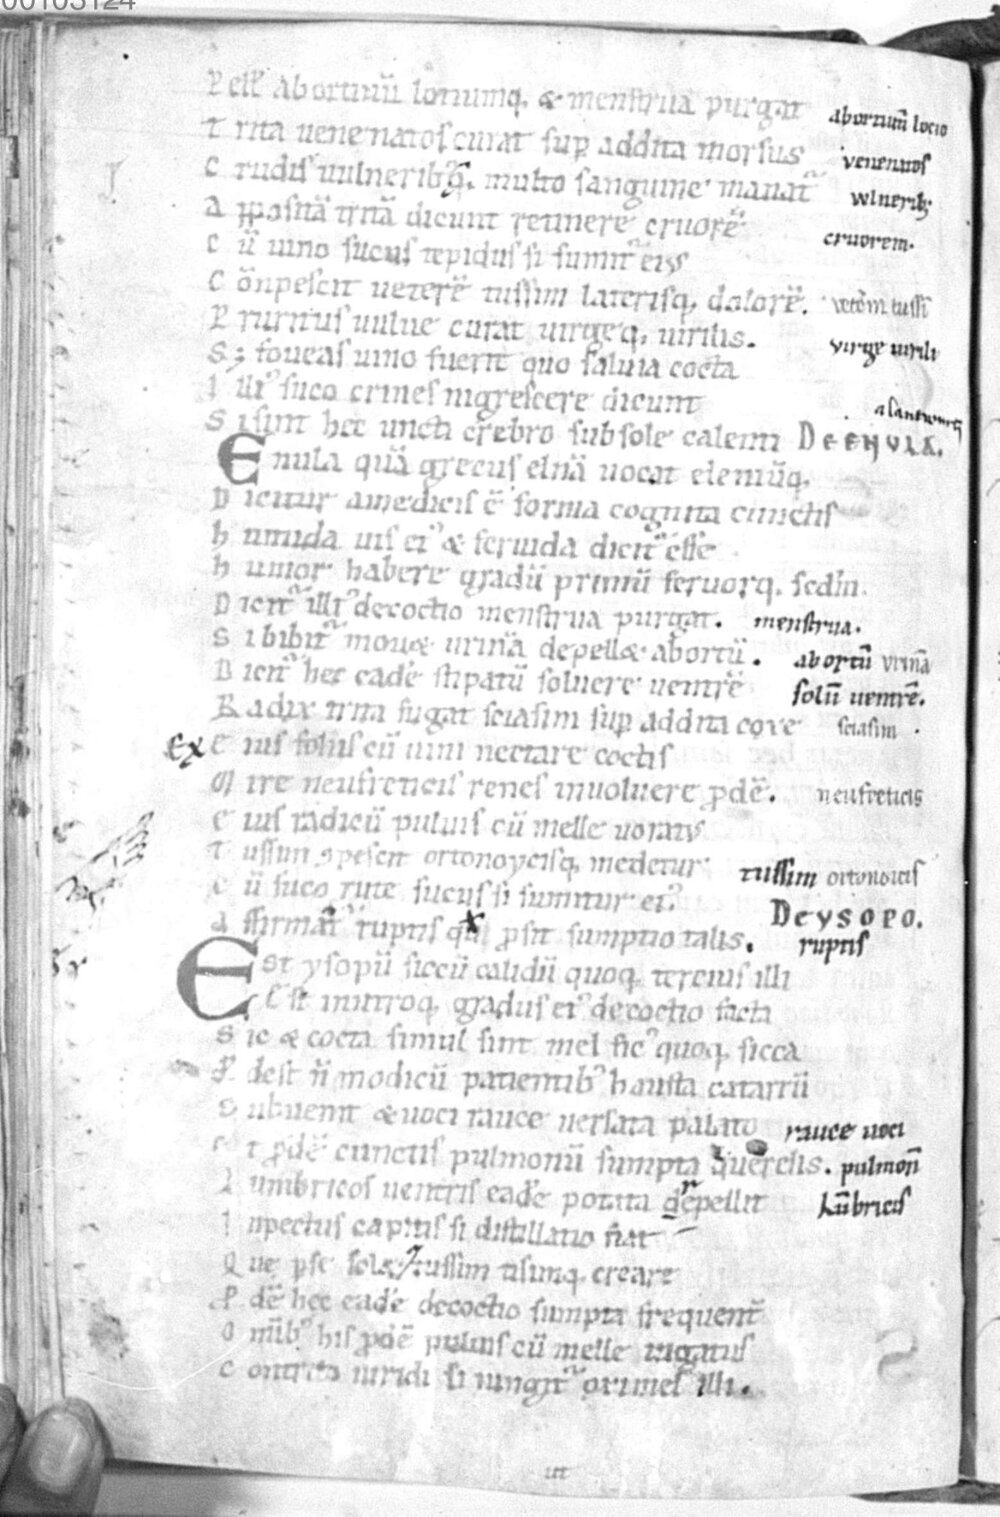 00103124
Pell' abortiuũ lotiumq; & menstrua purgat abortiuũ locio
Trita uenenatos curat sup addita morsus venenuos
Crudis uulnerib; q̃ multo sanguine manat̃ wlnerib;
Appositã tritã dicunt retinere cruorẽ cruorem.
Cũ uino sucus tepidus si sumit̃ eius
Cõnpescit ueterẽ tussim laterisq; dolorẽ. vetẽm tussĩ
Pruritus uulue curat uirgeq; uirilis. virge uirili
S; foueas uino fuerit quo saluia cocta
Illi᷒ suco crines nigrescere dicunt
Si sint hec uncti crebro sub sole calenti DE ENULA.
Enula quã grecus elnã uocat elemũq;
Dicitur a medicis ẽ forma cognita cunctis
humida uis ei᷒ & feruida dicit̃ esse
humor habere gradũ primũ feruorq; scdm̃.
Dicit̃ illi᷒ decoctio menstrua purgat. menstrua.
Si bibit̃ mouet urinã depellit abortũ. abortũ vrinã
Dicit̃ hec eadẽ stipatũ soluere uentrẽ solũ uentrẽ.
Radix trita fugat sciasim sup addita coxe sciasim .
Ex Eius foliis cũ uini nectare coctis
Mire neufreticis renes inuoluere p̱dẽ. neufreticis
Eius radicũ puluis cũ melle uoratus
Tussim ꝯpescit ortonoycisq; medetur tussim ortonoicis
Cũ suco rute sucus si sumitur ei᷒ DE YSOPO.
Affirmãt ruptis qđ prosit sumptio talis. ruptis
Est ysopũ siccũ calidũ quoq; tercius illi
Est in utroq; gradus ei᷒ decoctio facta
Sic & cocta simul sint mel fic᷒ quoq; sicca
Pdest ñ modicũ patientib᷒ hausta catarrũ
Subuenit & uoci rauce uersata palato rauce uoci
Et p̱dẽ cunctis pulmonũ sumpta querelis. pulmoñ
Lumbricos uentris eadẽ potata depellit Lũbricis
In pectus capitis si distillatio fiat
Que p̱se solet tussim tisimq; creare
Pdẽ hec eadẽ decoctio sumpta frequent̃
Omib᷒ his p̱dẽ puluis cũ melle
Contrito uiridi si iungit̃ oximel illi.